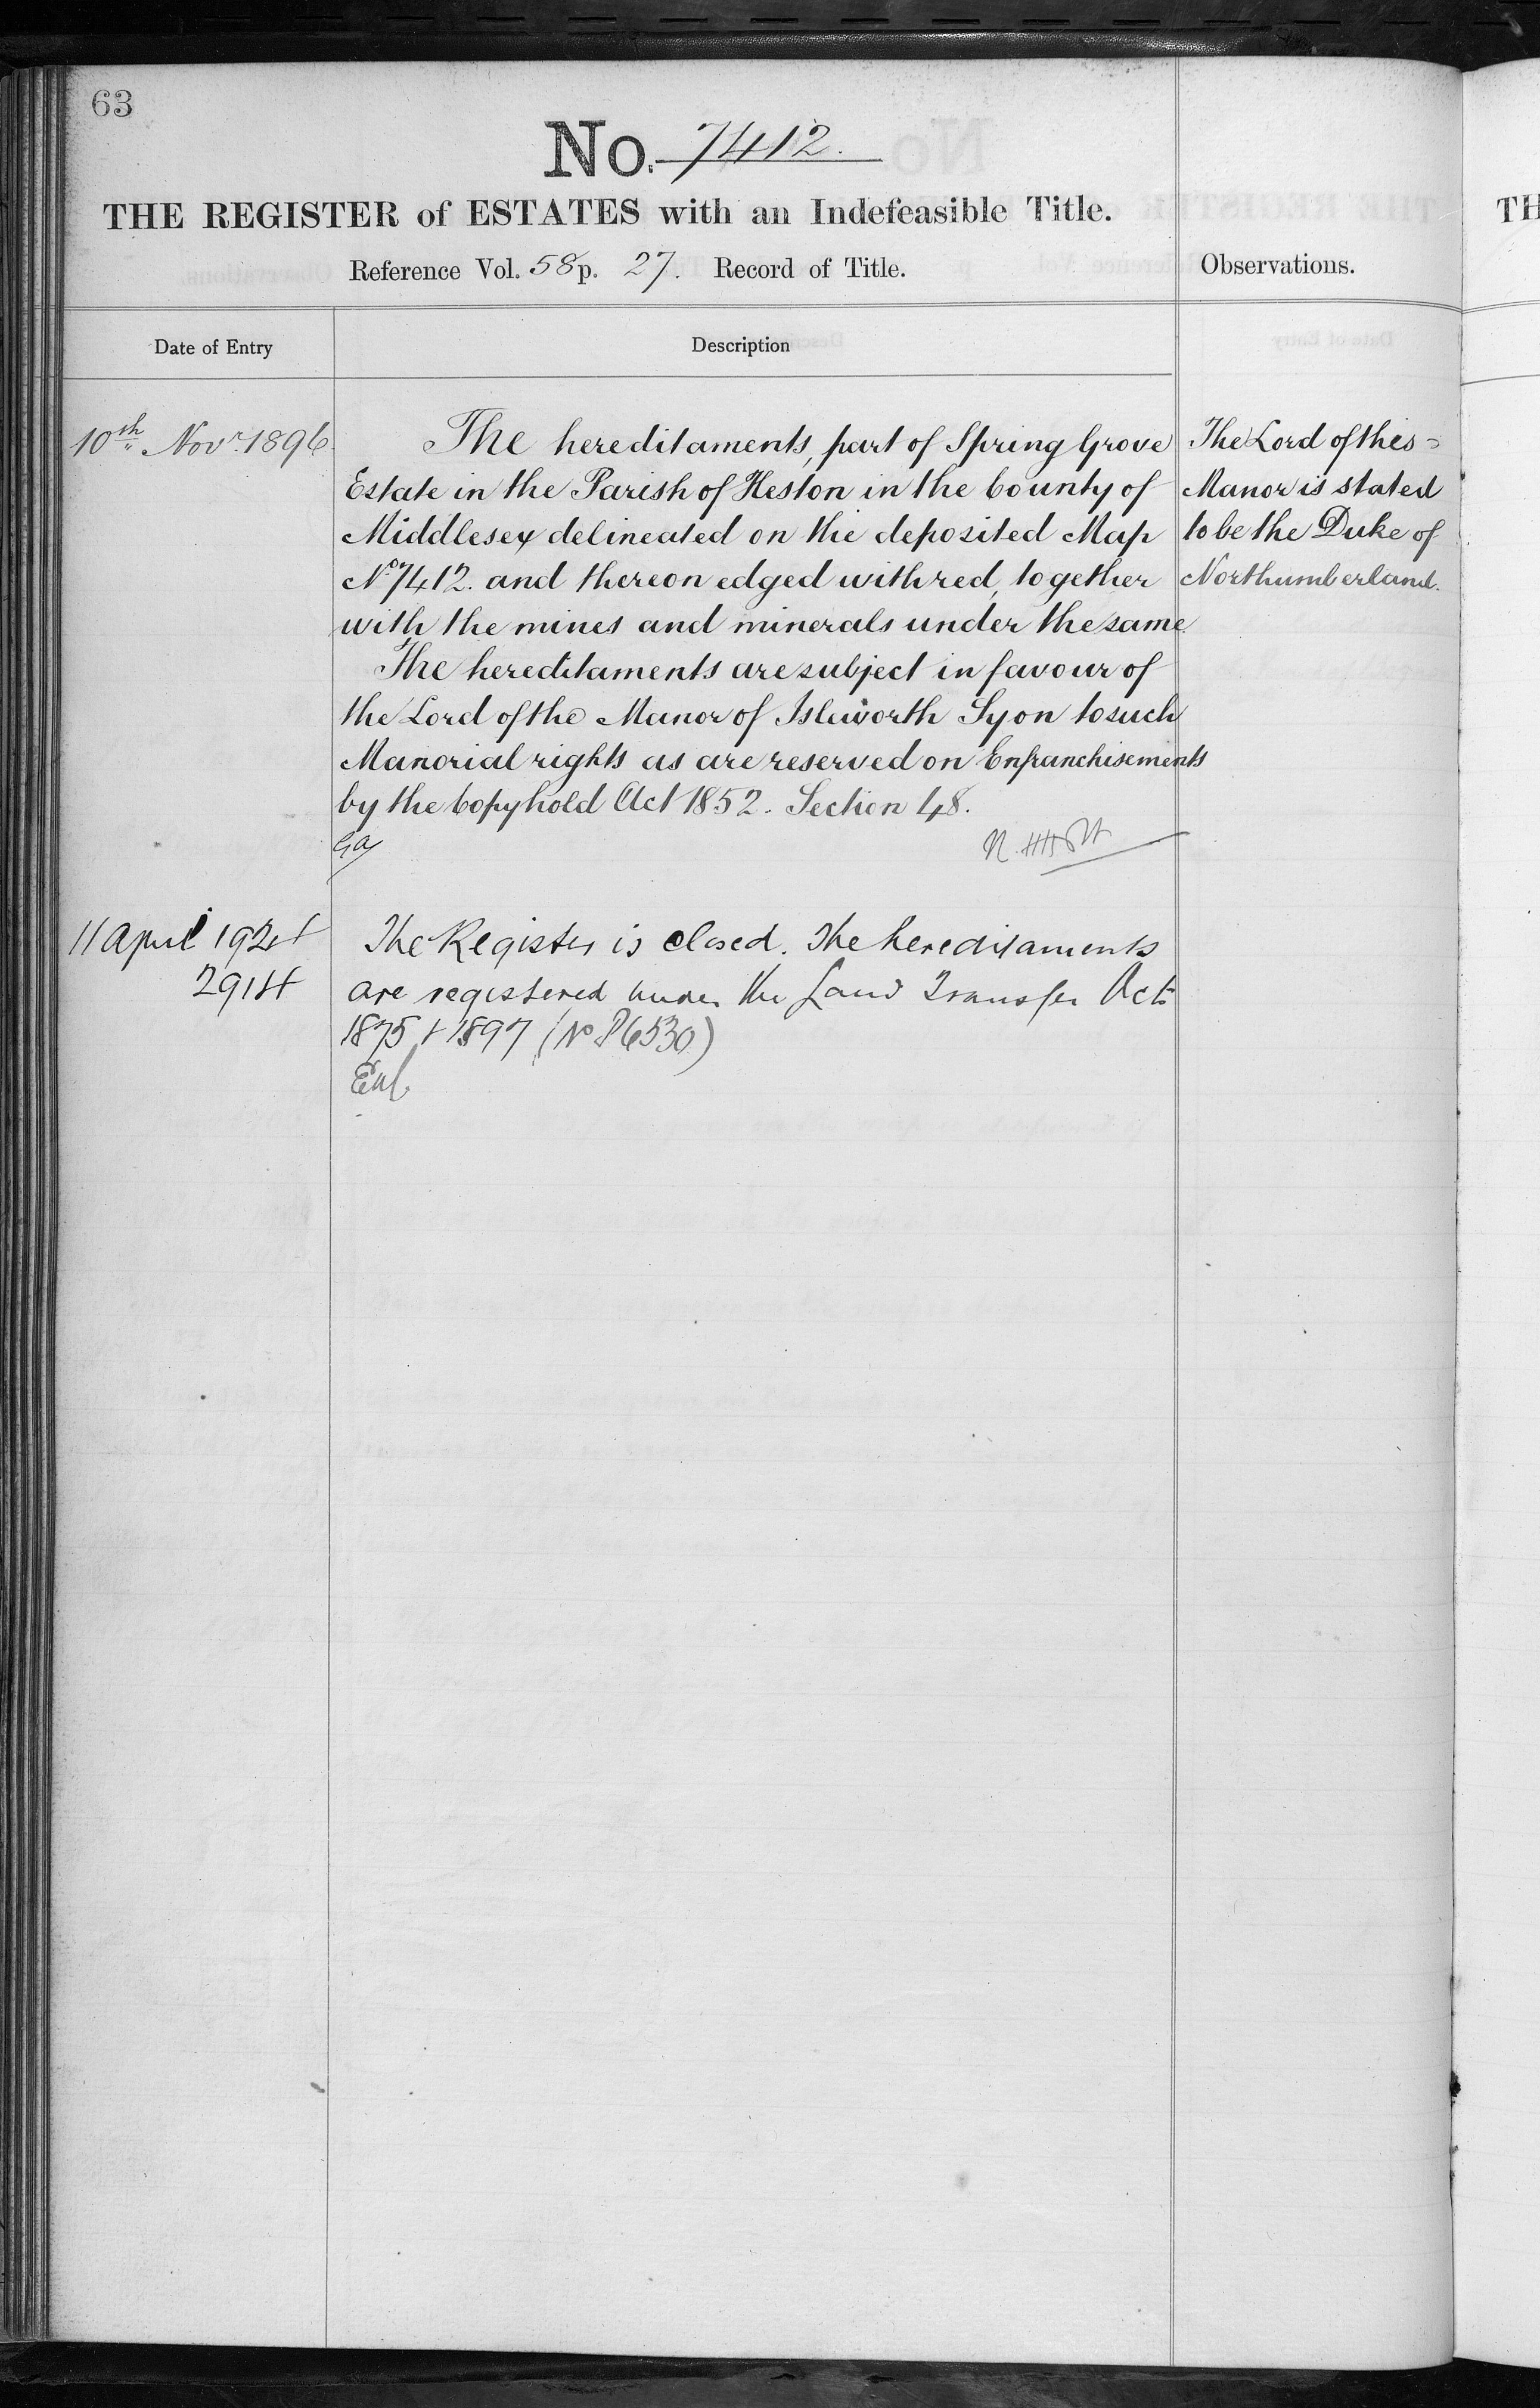 63
No. 7412.
THE REGISTER of ESTATES with an Indefeasible Title.
Reference Vol. 58 p. 27. Record of Title.
Observations.
Date of Entry
Description
10th Novr. 1896
The hereditaments, part of Spring Grove
Estate in the Parish of Heston in the County of
Middlesex delineated on the deposited Map
No. 7412. and thereon edged with red, together
with the mines and minerals under the same
The hereditaments are subject in favour of
the Lord of the Manor of Isleworth Syon to such
Manorial rights as are reserved on Enfranchisements
by the Copyhold Act 1852. Section 48.
The Lord of this =
Manor is stated
to be the Duke of
Northumberland.
11 April 1921
The Register is closed. The hereditaments
are registered under the Land Transfer Acts
1875 & 1897 (No 86530)
TH